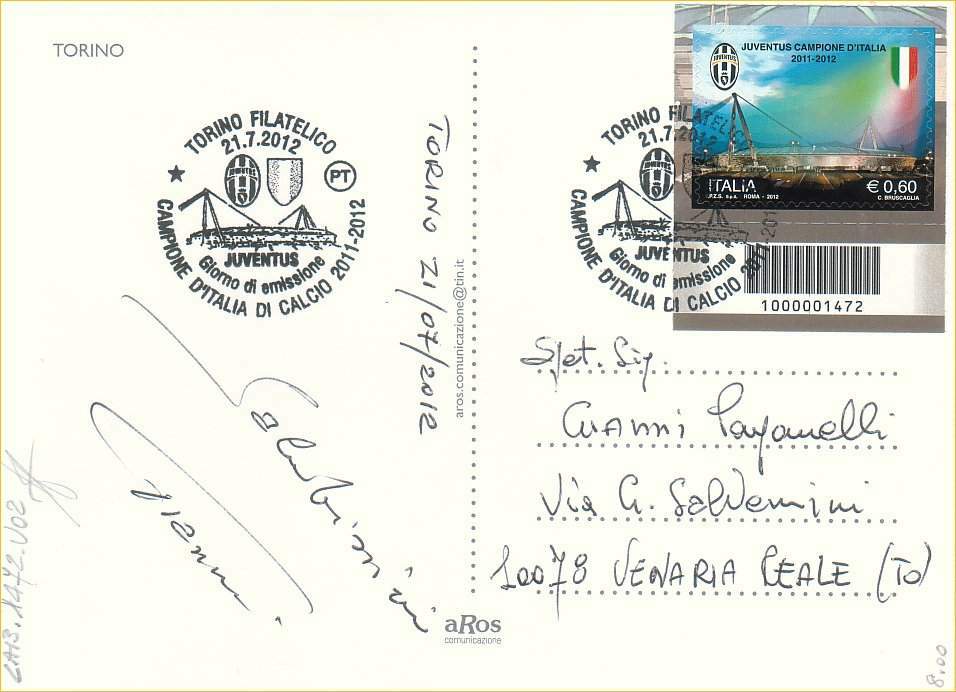 TORINO
TORINO FILATELICO
21.7.2012
JUVENTUS
PT
JUVENTUS
Giorno di emissione
CAMPIONE D'ITALIA DI CALCIO 2011-2012
TORINO 21/07/2012
aros.comunicazione@tin.it
Gianni
aRos
comunicazione
JUVENTUS CAMPIONE D'ITALIA
2011-2012
JUVENTUS
ITALIA
€ 0,60
I.P.Z.S. S.p.A. ROMA - 2012
C. BRUSCAGLIA
TORINO FILATELICO
21.7.2012
JUVENTUS
JUVENTUS
Giorno di emissione
CAMPIONE D'ITALIA DI CALCIO 2011-2012
1000001472
Spet. Sig.
Gianni Paganelli
Via G. Salvemini
10078 VENARIA REALE (TO)
8.00